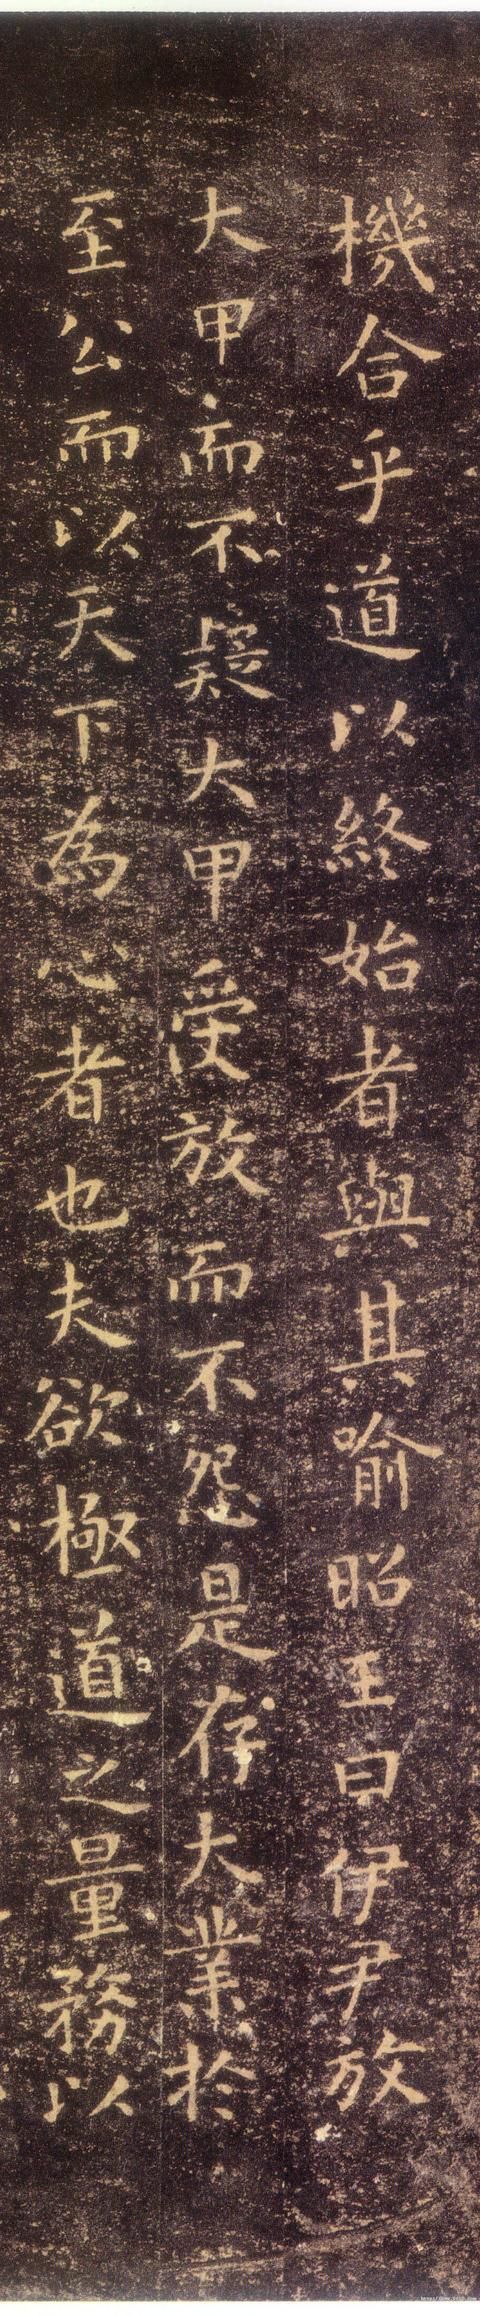 機合乎道以終始者與其喻昭王曰伊尹放
大甲而不疑大甲受放而不怨是存大業於
至公而以天下為心者也夫欲極道之量務以